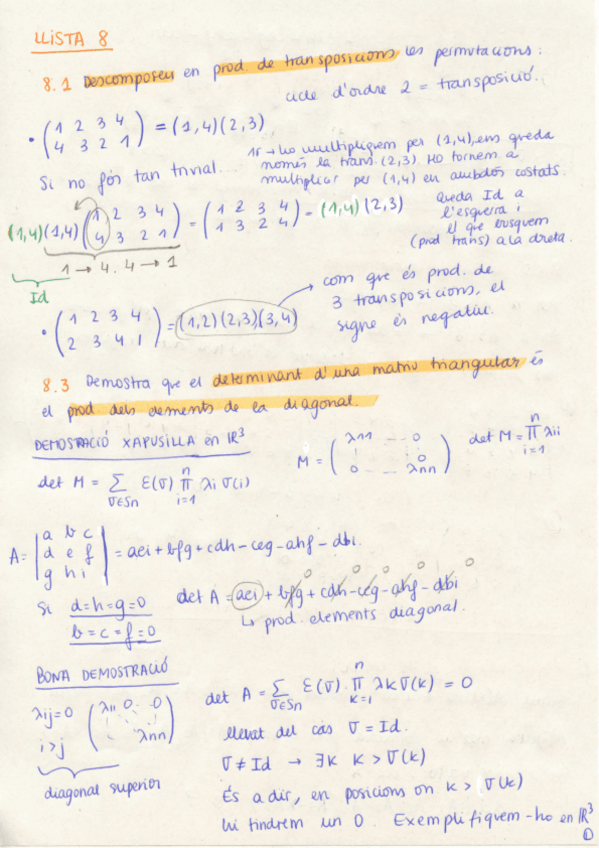 LLISTA 8
8.1 Descomposeu en prod. de transposicions les permutacions:
cicle d'ordre 2 = transposició.
• (1 2 3 4 / 4 3 2 1) = (1,4)(2,3)
1r → ho multipliquem per (1,4), ens queda
només la trans. (2,3). Ho tornem a
multiplicar per (1,4) en ambdós costats.
Si no fós tan trivial...
(1,4)(1,4)(1 2 3 4 / 4 3 2 1) = (1 2 3 4 / 1 3 2 4) = (1,4)(2,3)
Queda Id a
l'esquerra i
el que busquem
(prod trans) a la dreta.
1 → 4. 4 → 1
Id
• (1 2 3 4 / 2 3 4 1) = (1,2)(2,3)(3,4)
com que és prod. de
3 transposicions, el
signe és negatiu.
8.3 Demostra que el determinant d'una matriu triangular és
el prod. dels elements de la diagonal.
DEMOSTRACIÓ XAPUSILLA en ℝ³
M = (λ11 ... 0 / ⋮ ⋮ 0 / 0 ... λnn)
det M = ∏ i=1 n λii
det M = Σ σ∈Sn ε(σ) ∏ i=1 n λi σ(i)
A = |a b c / d e f / g h i| = aei + bfg + cdh − ceg − ahf − dbi.
Si d=h=g=0
b=c=f=0
det A = aei + bfg + cdh − ceg − ahf − dbi
0 0 0 0 0
↳ prod. elements diagonal.
BONA DEMOSTRACIÓ
λij=0
i>j
(λii 0 .. 0 / λnn)
diagonal superior
det A = Σ σ∈Sn ε(σ) · ∏ k=1 n λk σ(k) = 0
llevat del cas σ = Id.
σ ≠ Id → ∃k k > σ(k)
És a dir, en posicions on k > σ(k)
hi tindrem un 0. Exemplifiquem-ho en ℝ³
①